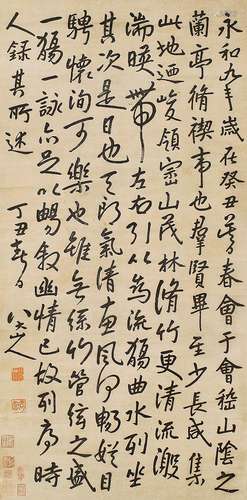 永和九年歲在癸丑暮春會于會嵇山陰之
蘭亭脩禊事也羣賢畢至少長咸集
此地迺峻領崇山茂林脩竹更清流激
湍暎帶左右引以為流觴曲水列坐
其次是日也天朗氣清惠風和暢娛目
騁懷洵可樂也雖無絲竹管弦之盛
一觴一詠亦足以暢敘幽情已故列序時
人錄其所述
八大山人